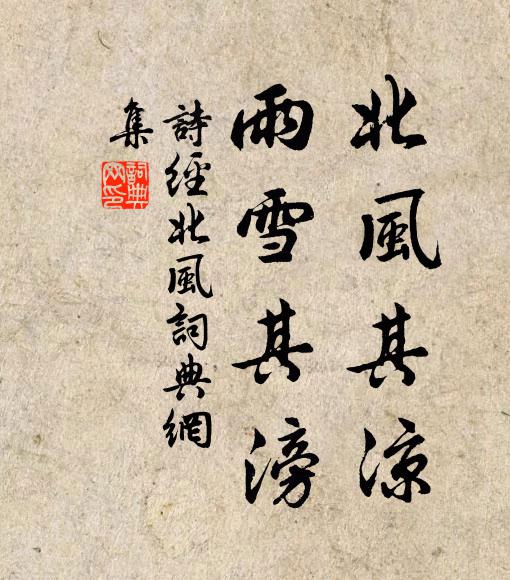 北風其涼
雨雪其滂
詩經北風詞典網
集
詞典
網印